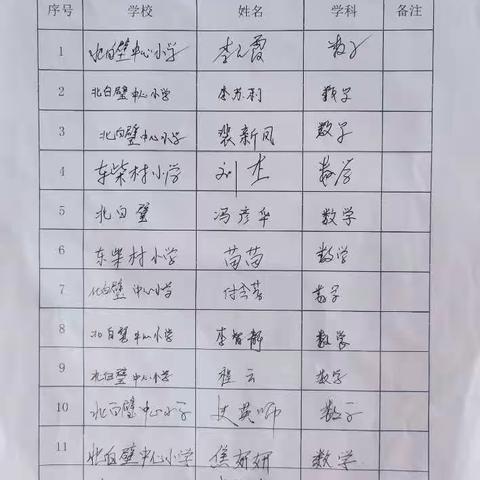 序号 学校 姓名 学科 备注
1 北白壁中心小学 李元霞 数学
2 北白壁中心小学 李苏利 数学
3 北白壁中心小学 裴新凤 数学
4 东柴村小学 刘杰 数学
5 北白壁 冯彦华 数学
6 东柴村小学 苗苗 数学
7 北白壁中心小学 数学
8 北白壁中心小学 李智静 数学
9 北白壁中心小学 程云 数学
10 北白壁中心小学 史英师 数学
11 北白壁中心小学 焦妍妍 数学